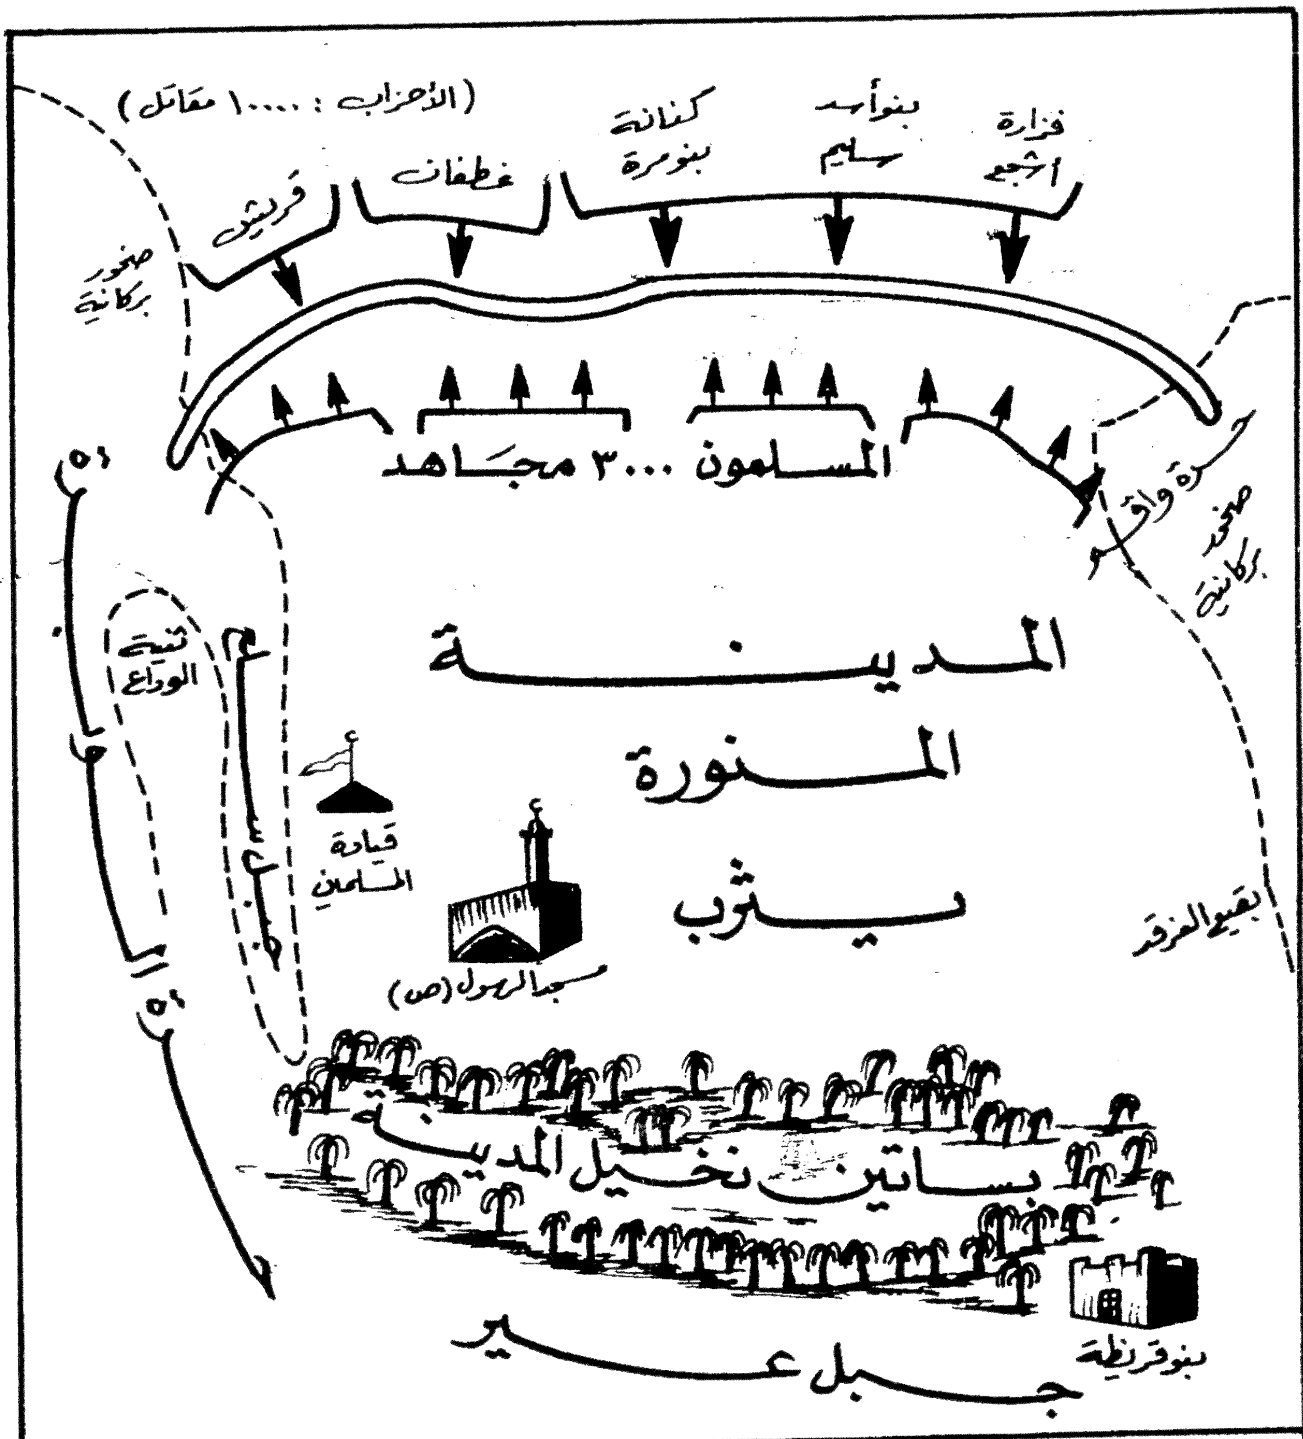 (الأحزاب : ١٠٠٠٠ مقاتل)
فزارة
أشجع
بنو أسد
سليم
كنانة
بنو مرة
غطفان
قريش
صخور
بركانية
المسلمون ٣٠٠٠ مجاهد
حرة واقم
صخور
بركانية
حرة الوبرة
ثنية
الوداع
جبل سلع
المدينة
المنورة
يثرب
قيادة
المسلمين
مسجد الرسول (ص)
بقيع الغرقد
بساتين نخيل المدينة
بنو قريظة
جبل عير